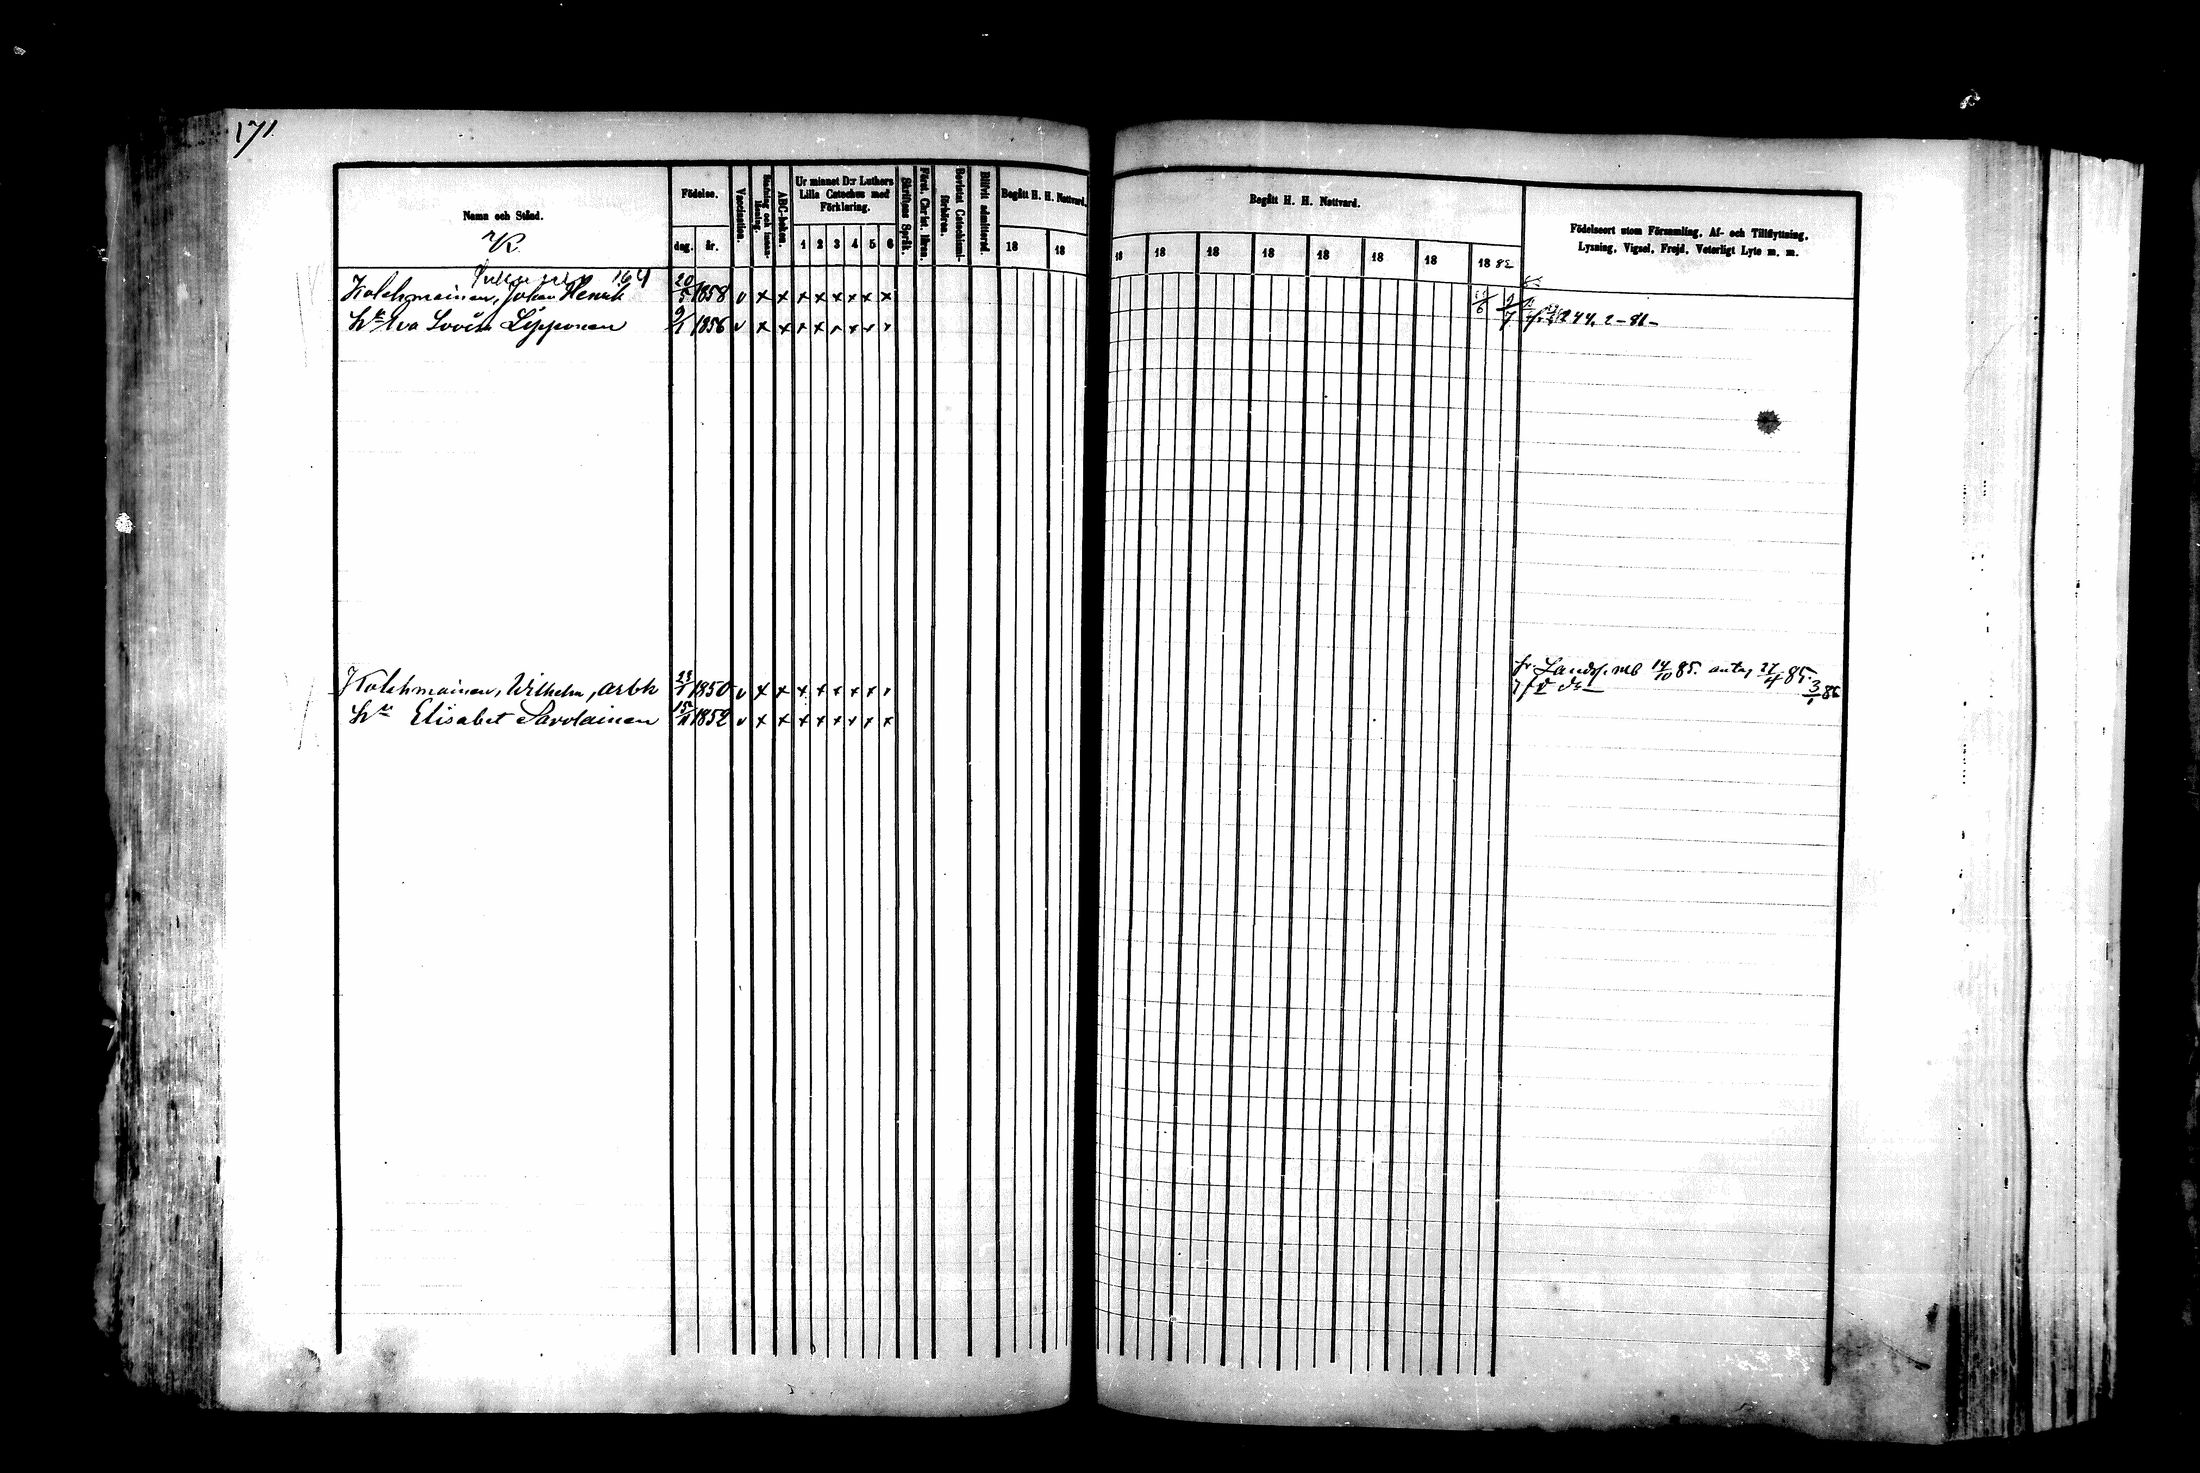 171
Namn och Stånd.
K.
Födelse.
dag. år.
Vaccination.
ABC-boken.
Ur minnet D:r Luthers
Lilla Cateches med
Förklaring.
1 2 3 4 5 6
Skriftens Språk.
Bevistat Catechismi-
förhören.
Blifvit admitterad.
Begått H. H. Nattvard.
18 18
Begått H. H. Nattvard.
18 18 18 18 18 18 18 18 82
Födelseort utom Församling, Af- och Tillflyttning,
Lysning, Vigsel, Frejd, Veterligt Lyte m. m.
164
Kolehmainen, Johan Henrik 20/5 1858 v x x x x x x x x
Hu Eva Lovisa Lipponen 9/1 1856 v x x x x
244. 2 - 81 -
Kolehmainen, Wilhelm, arbk 23/1 1850 v x x x x x x x
fr. Landsf. mb 14/10 85. antag 27/4 85.
3/1 86
Hu Elisabet Savolainen 15/11 1852 v x x x x x x x x